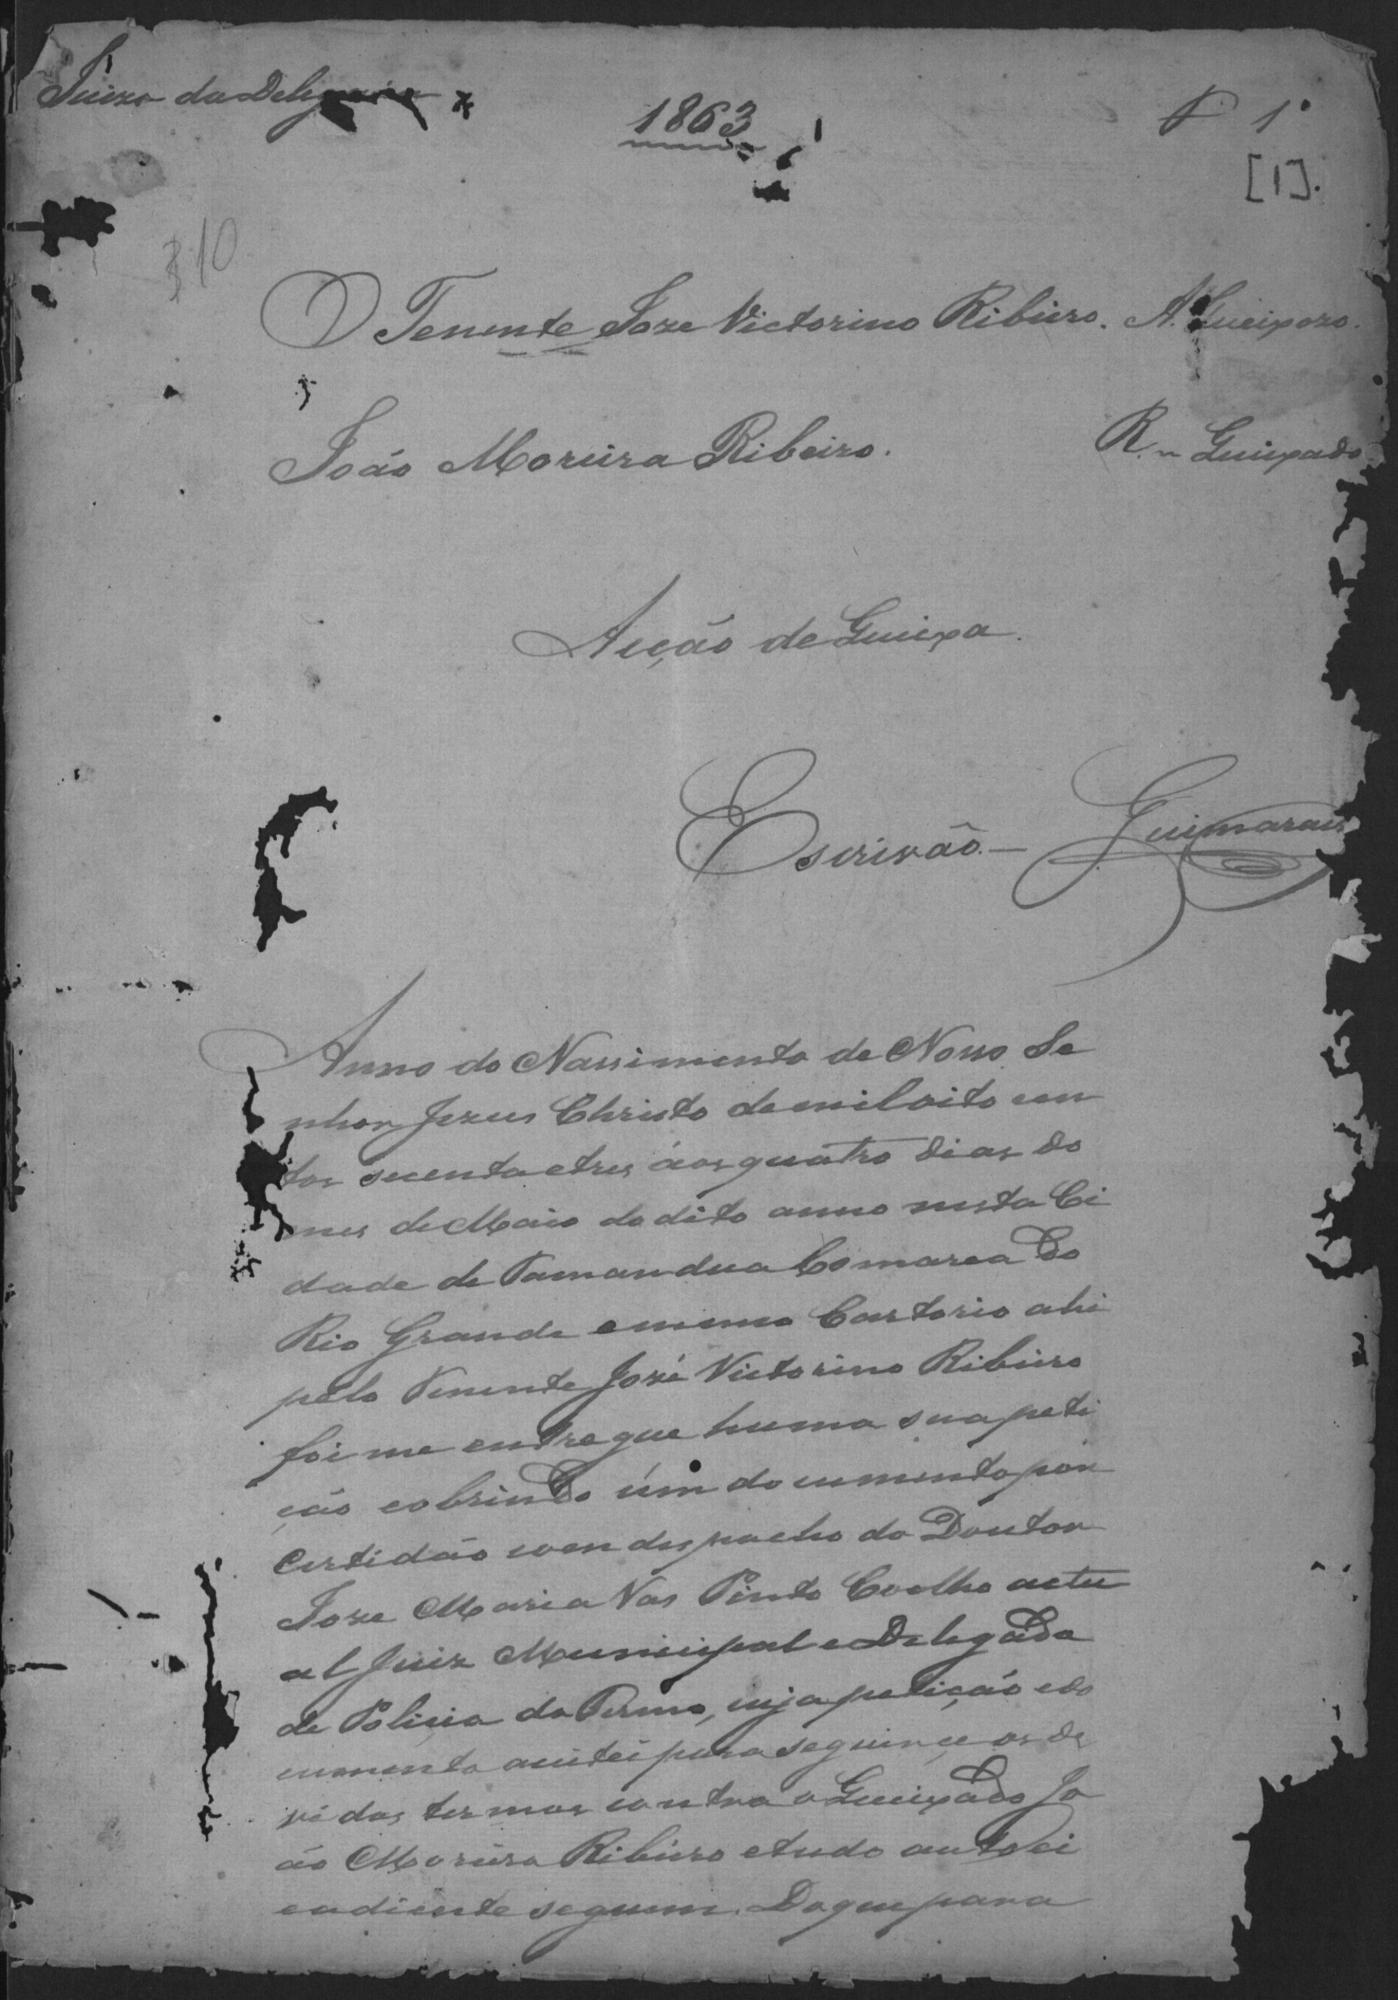 Juizo da Delegacia
1863
F 1º
[1].
310
O Tenente Joze Victorino Ribeiro. A. Queixozo.
João Moreira Ribeiro. R. Queixado
Acção de Queixa.
Escrivão — Guimaraes
Anno do Nassimento de Nosso Se
nhor Jezus Christo de mil oito cen
tos secenta e tres áos quatro dias do
mes de Maio do dito anno nesta Ci
dade de Tamandua Comarca do
Rio Grande em meu Cartorio ahi
pelo Tenente José Victorino Ribeiro
foi me entregue huma sua peti
ção cobrindo úm documento por
Certidão com despacho do Doutor
Joze Maria Vas Pinto Coelho actu
al Juiz Municipal e Delegado
de Policia do Termo, cuja petição e do
cumento aceitei para seguir-se os de
vidos termos contra o Queixado Jo
ão Moreira Ribeiro e tudo autoei
eadiente seguem. Do que para